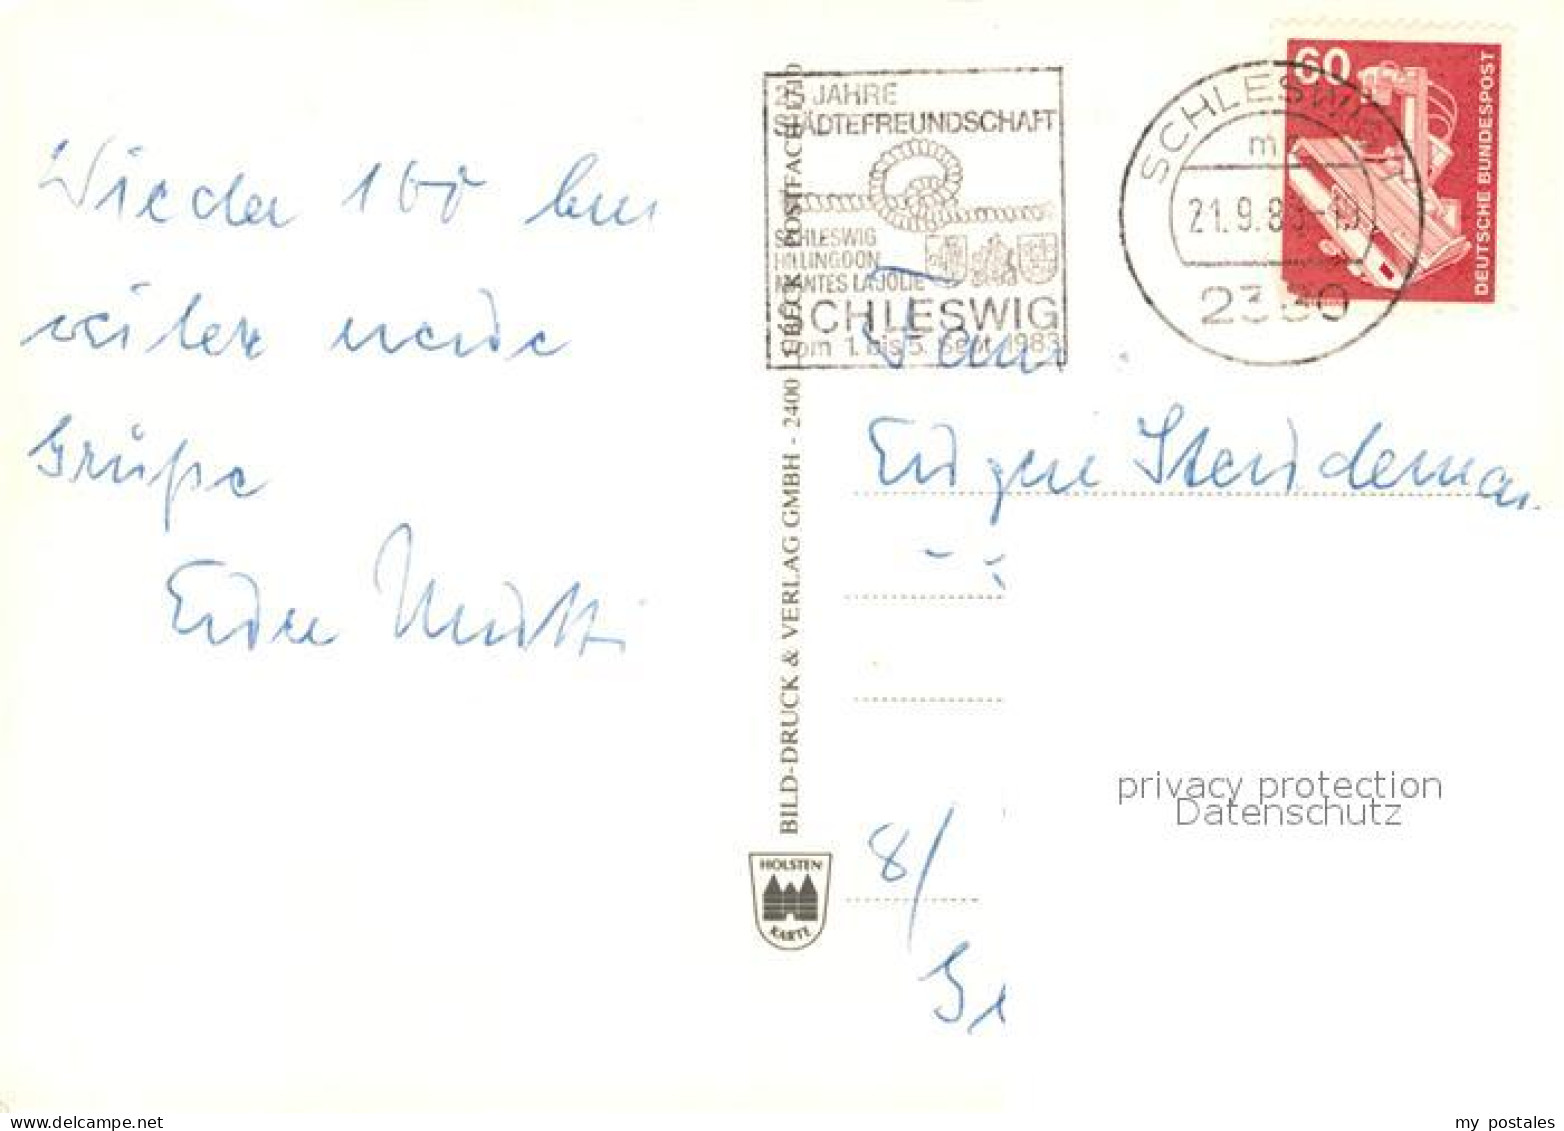 Wieder 100 km
weiter neue
Grüße
Eure Mutti
BILD-DRUCK & VERLAG GMBH - 2400 LÜBECK POSTFACH 1710
HOLSTEN
KARTE
25 JAHRE
STÄDTEFREUNDSCHAFT
SCHLESWIG
HILLINGDON
MANTES LA JOLIE
SCHLESWIG
vom 1. bis 5. Sept. 1983
SCHLESWIG 1
m
21.9.83-19
2380
60
DEUTSCHE BUNDESPOST
Fam
Eugen Steudeman
8/
privacy protection
Datenschutz
my postales